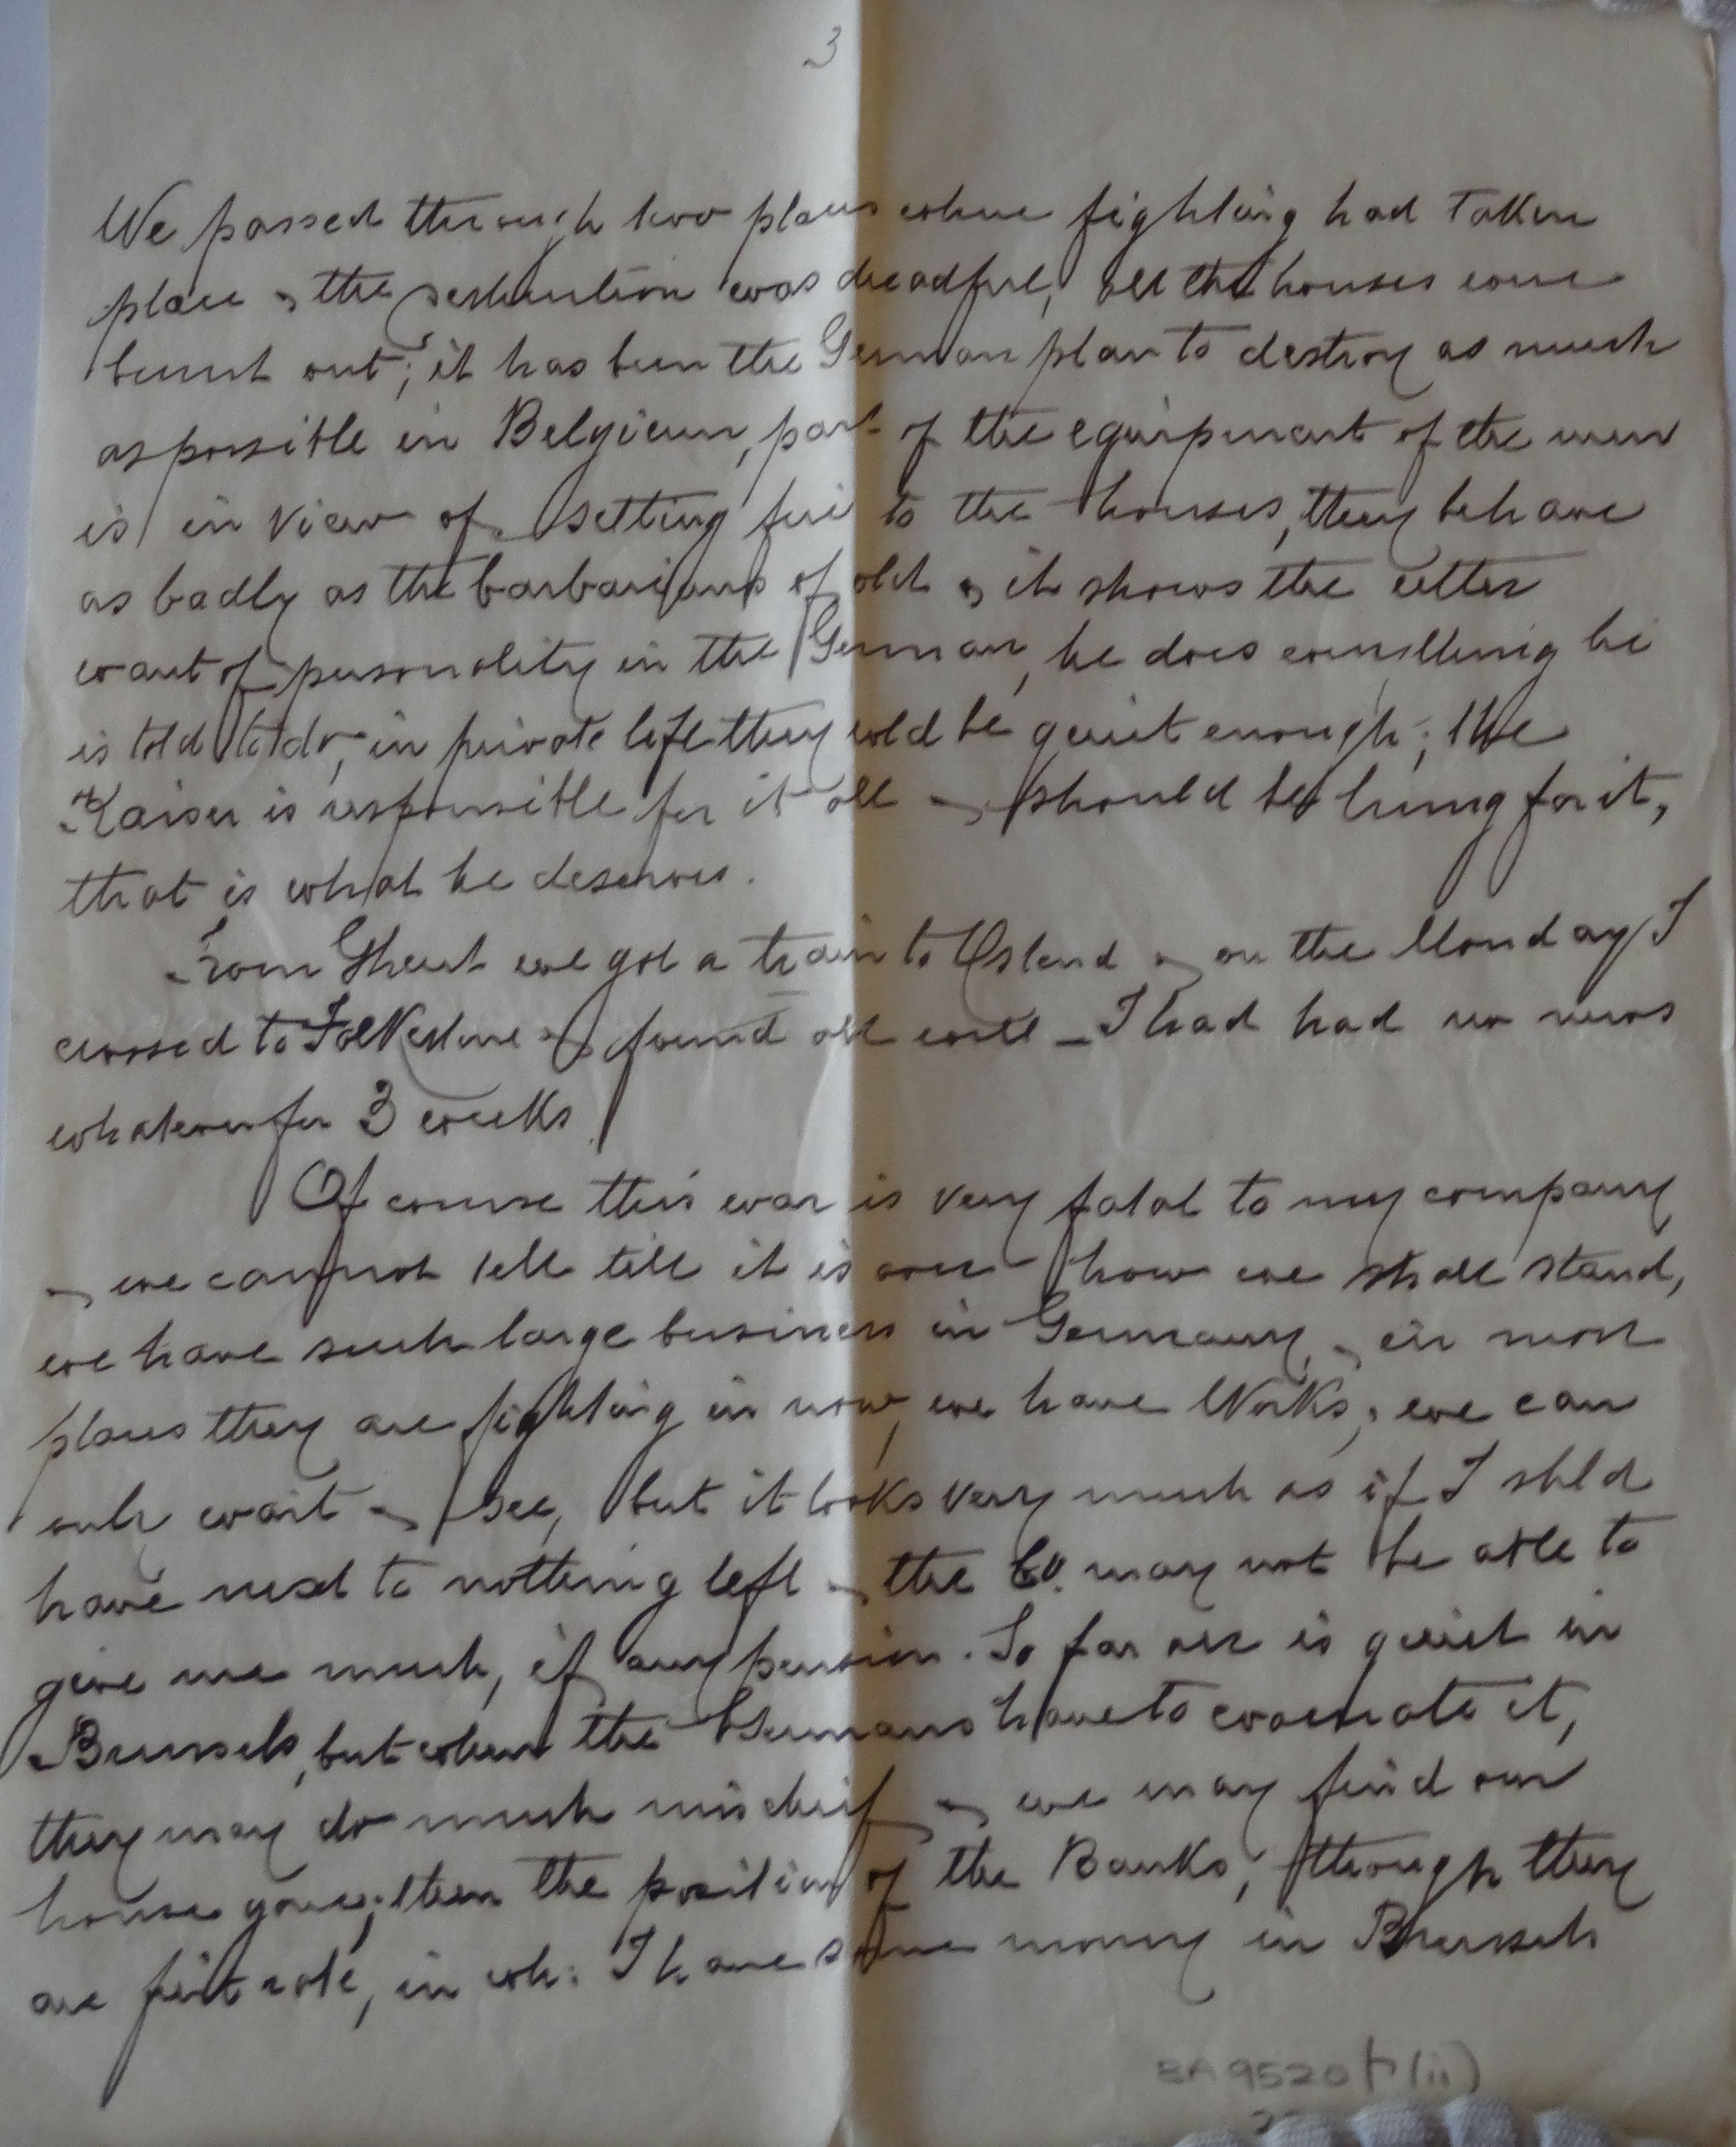 3
We passed through two places where fighting had taken
place & the destruction was dreadful, all the houses were
burnt out; it has been the German plan to destroy as much
as possible in Belgium, part of the equipment of the men
is in view of setting fire to the houses, they behave
as badly as the barbarians of old & it shows the utter
want of personality in the German, he does everything he
is told to do, in private life they wld be quiet enough; the
Kaiser is responsible for it all & should be hung for it,
that is what he deserves.
From Ghent we got a train to Ostend & on the Monday I
crossed to Folkestone & found all well _ I had had no news
whatever for 3 weeks.
Of course this war is very fatal to my company
& we cannot tell till it is over how we shall stand,
we have such large business in Germany, & in most
places they are fighting in now, we have Works; we can
only wait & see, but it looks very much as if I shld
have next to nothing left & the Co. may not be able to
give me much, if any pension. So far all is quiet in
Brussels, but when the Germans have to evacuate it,
they may do much mischief & we may find our
house gone; then the position of the Banks, though they
are first rate, in wh: I have some money in Brussels
BA 9520 (ii)